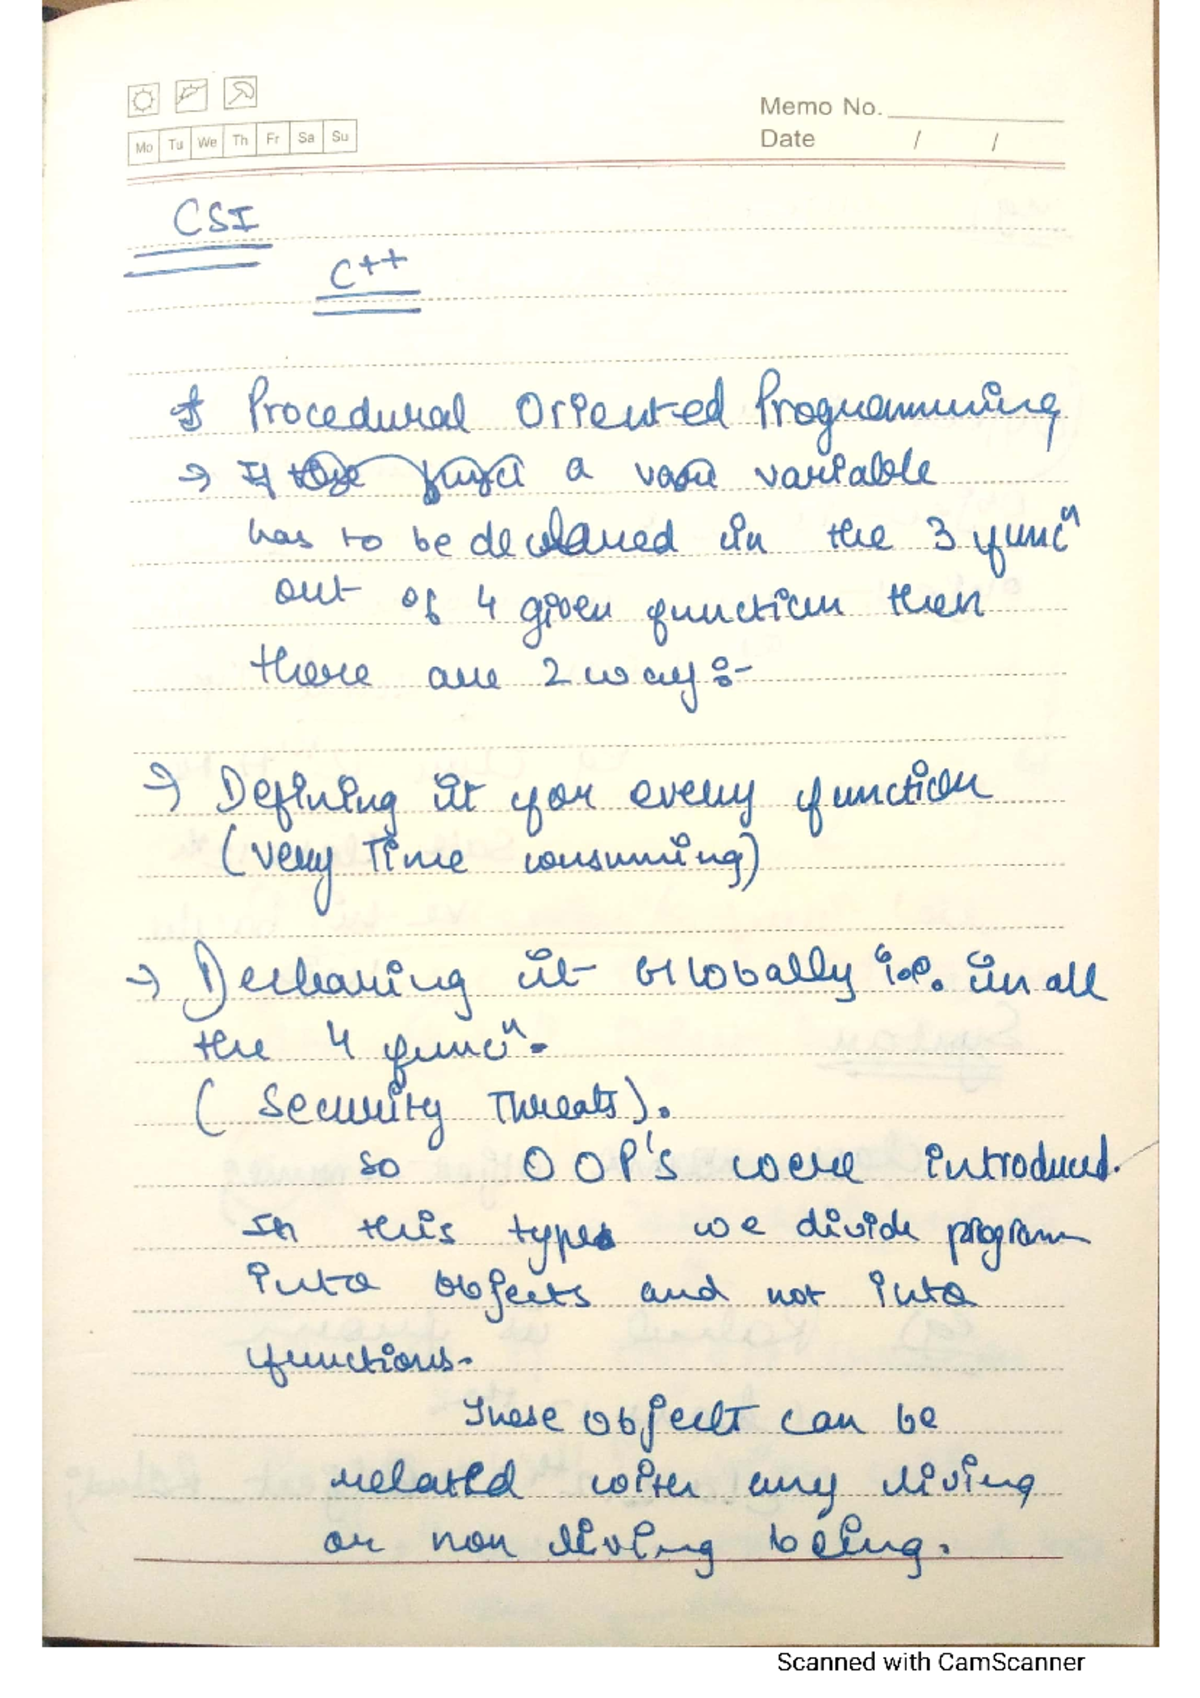 Memo No.
Mo Tu We Th Fr Sa Su
Date / /
CSI
C++
* Procedural Oriented Programming
→ If a variable
has to be declared in the 3 funcⁿ
out of 4 given function then
there are 2 way :-
→ Defining it for every function
(very Time consuming)
→ Declaring it Globally i.e. in all
the 4 funcⁿ.
( Security Threats ).
so OOP's were introduced.
In this type we divide program
into objects and not into
functions.
These object can be
related with any living
or non living being.
Scanned with CamScanner